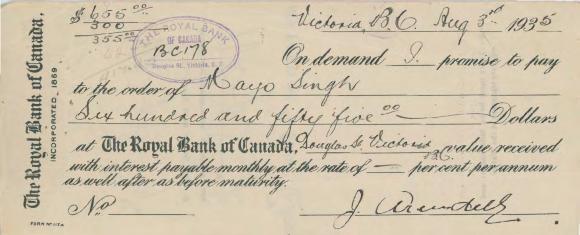 $ 655.00
300
355.00
THE ROYAL BANK
OF CANADA
BC178
Douglas St., Victoria, B.C.
Victoria, B.C. Aug 3rd 1935
On demand I promise to pay
to the order of Mayo Singh
Six hundred and fifty five 00 Dollars
at The Royal Bank of Canada, Douglas St, Victoria B.C. value received
with interest payable monthly at the rate of — per cent per annum
as well after as before maturity.
No
J.
The Royal Bank of Canada,
INCORPORATED 1869